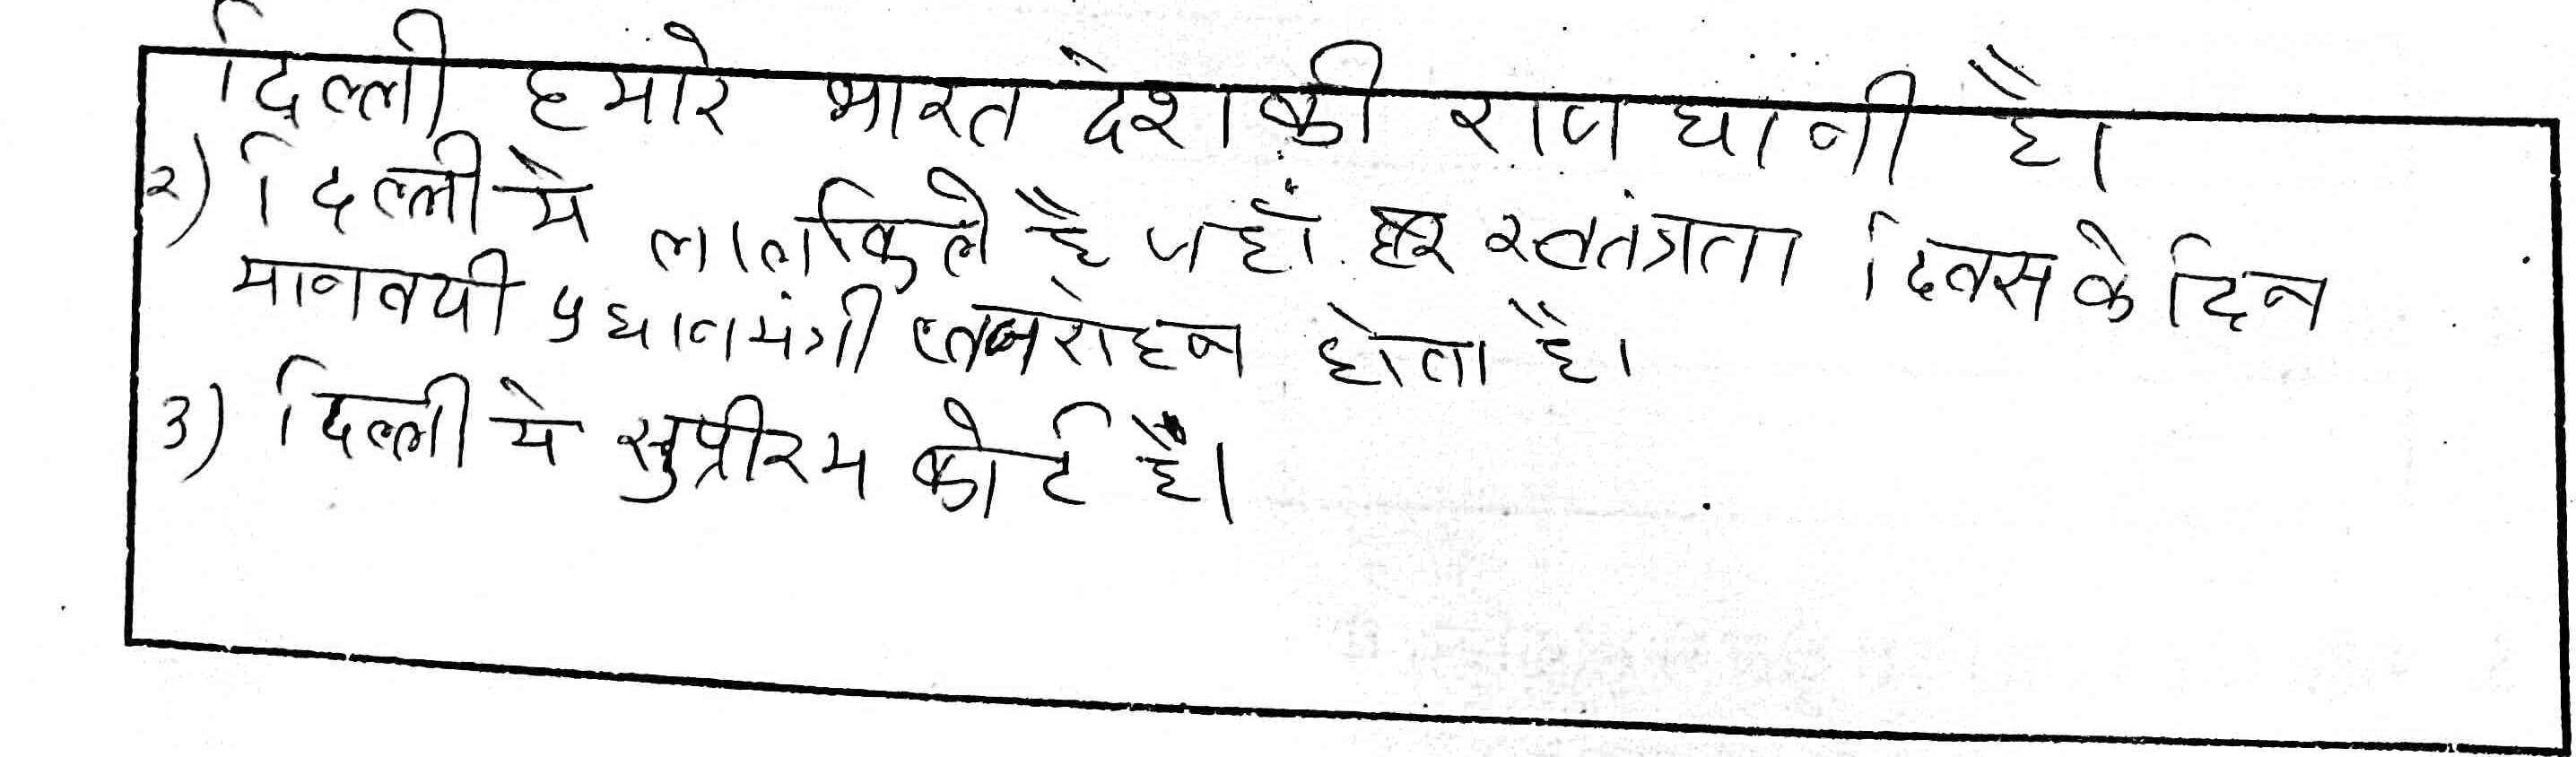 दिल्ली हमारे भारत देश की राजधानी है।
२) दिल्ली मे लालकिले है जहाँ हर स्वतंत्रता दिवस के दिन
माननयी प्रधानमंत्री होता है।
3) दिल्ली मे सुप्रीरम कोर्ट है।